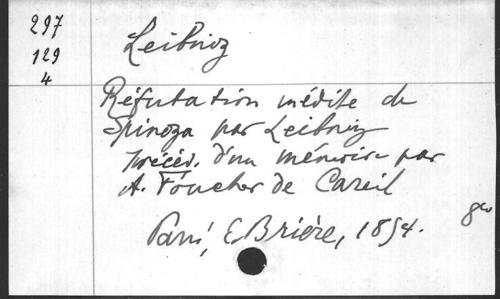 297
129
4
Leibniz
Réfutation inédite de
Spinoza par Leibniz
précéd. d'un mémoire par
A. Foucher de Careil
Paris, E. Brière, 1854.